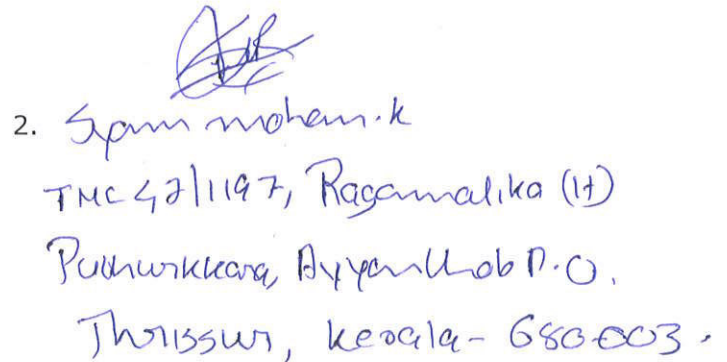 2. Syam mohan.k
TMC 47/1197, Ragamalika (H)
Puthurkkara, Ayyanthob P.O.
Thrissur, Kerala - 680003.